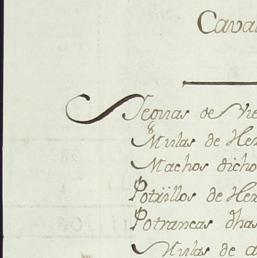 Cava
Yeguas de Vie
8
Mulas de He
Machos dicho
Potrillos de He
Potrancas dhas
Mulas de a